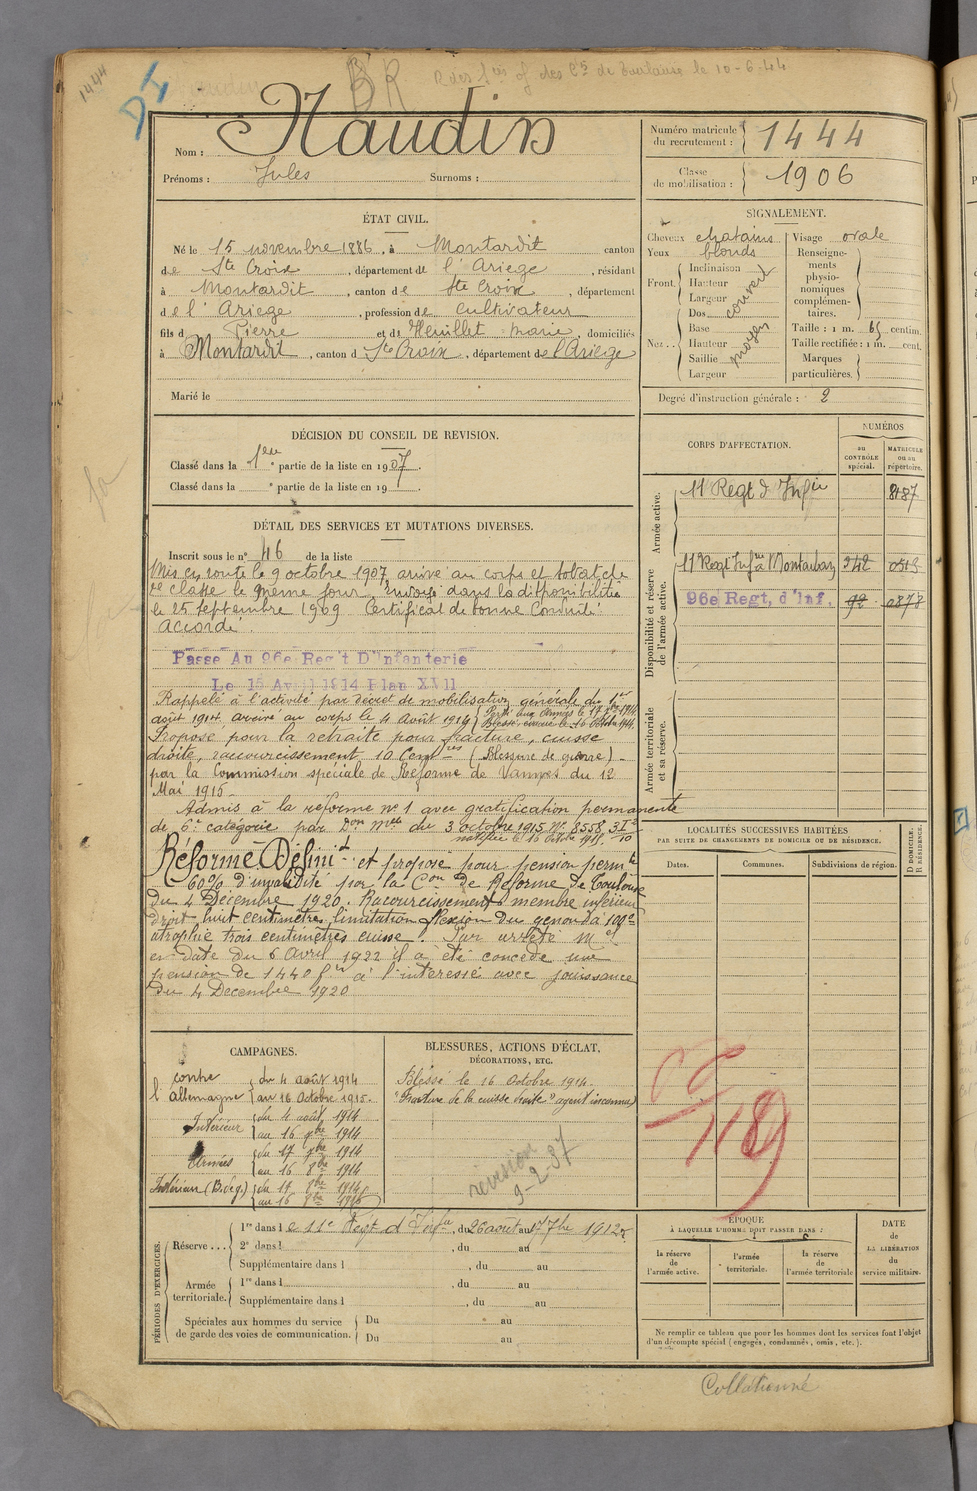 1444
DI
BR
R des 1ers of des Cts de Toulouse le 10-6-44
Nom : Naudin
Prénoms : Jules Surnoms :
Numéro matricule du recrutement : 1444
Classe de mobilisation : 1906
ÉTAT CIVIL.
Né le 15 novembre 1886, à Montardit canton
de Ste Croix, département de l'Ariege, résidant
à Montardit, canton de Ste Croix, département
de l'Ariege, profession de cultivateur
fils d Pierre et de Heuillet Marie, domiciliés
à Montardit, canton d Ste Croix, département de l'Ariege
Marié le
SIGNALEMENT.
Cheveux chatains
Yeux blonds
Front. Inclinaison
Hauteur
Largeur
couvert
Nez. Dos
Base
Hauteur
Saillie
Largeur
moyen
Visage ovale
Renseignements physionomiques complémentaires.
Taille : 1 m. 65 centim.
Taille rectifiée : 1 m. cent.
Marques particulières.
Degré d'instruction générale : 2
DÉCISION DU CONSEIL DE REVISION.
Classé dans la 1ere partie de la liste en 1907.
Classé dans la e partie de la liste en 19
DÉTAIL DES SERVICES ET MUTATIONS DIVERSES.
Inscrit sous le n° 46 de la liste
Mis en route le 9 octobre 1907, arrivé au corps et soldat de
2e classe le même jour. Envoyé dans la disponibilité
le 25 septembre 1909. Certificat de bonne Conduite
accordé.
Passé Au 96e Reg't D'Infanterie
Le 15 Avril 1914 Plan XVII
Rappelé à l'activité par décret de mobilisation générale du 1er
août 1914, arrivé au corps le 4 Août 1914
Parti aux Armées le 17 7bre 1914
Blessé évacué le 16 Octobre 1914.
Proposé pour la retraite pour fracture, cuisse
droite, raccourcissement 10 Centres (Blessure de guerre) _
par la Commission spéciale de Réforme de Vannes du 12
Mai 1915 _
Admis à la réforme n° 1 avec gratification permanente
de 6e catégorie par Don Mlle du 3 octobre 1915 N° 8558
notifiée le 16 Octobre 1915.
Réformé Définit et proposé pour pension permte
60% d'invalidité par la Con de Réforme de Toulouse
du 4 Décembre 1920. Raccourcissement membre inférieur
droit, huit centimètres, limitation flexion du genou à 100°
atrophie trois centimètres cuisse. Par arrêté Mel
en date du 6 Avril 1922 il a été concédé une
pension de 1440 frs à l'intéressé avec jouissance
du 4 Decembre 1920
CORPS D'AFFECTATION.
NUMÉROS
au CONTRÔLE spécial.
MATRICULE ou au répertoire.
Armée active.
11 Regt d'Infie 8187
Disponibilité et réserve de l'armée active.
11 Regt Infre à Montauban 242 0515
96e Regt, d'Inf. 92 0878
Armée territoriale et sa réserve.
LOCALITÉS SUCCESSIVES HABITÉES
PAR SUITE DE CHANGEMENTS DE DOMICILE OU DE RÉSIDENCE.
Dates. Communes. Subdivisions de région.
D DOMICILE.
R RÉSIDENCE.
CAMPAGNES.
contre l'allemagne
du 4 août 1914
au 16 Octobre 1915.
Intérieur
du 4 août 1914
au 16 7bre 1914
Armées
du 17 7bre 1914
au 16 8bre 1914
Intérieur (B.deg.)
du 17 8bre 1914
au 16 8bre 1915
BLESSURES, ACTIONS D'ÉCLAT,
DÉCORATIONS, ETC.
Blessé le 16 Octobre 1914.
"Fracture de la cuisse droite" agent inconnu
révision
9-2-37
PÉRIODES D'EXERCICES.
Réserve... 1re dans l e 11e Regt d'Infie, du 26 août au 17 7bre 1912
2e dans l , du au
Supplémentaire dans l , du au
Armée territoriale. 1re dans l , du au
Supplémentaire dans l , du au
Spéciales aux hommes du service de garde des voies de communication.
Du au
Du au
ÉPOQUE
À LAQUELLE L'HOMME DOIT PASSER DANS :
la réserve de l'armée active.
l'armée territoriale.
la réserve de l'armée territoriale
DATE de LA LIBÉRATION du service militaire.
Ne remplir ce tableau que pour les hommes dont les services font l'objet
d'un décompte spécial (engagés, condamnés, omis, etc.).
Collationné